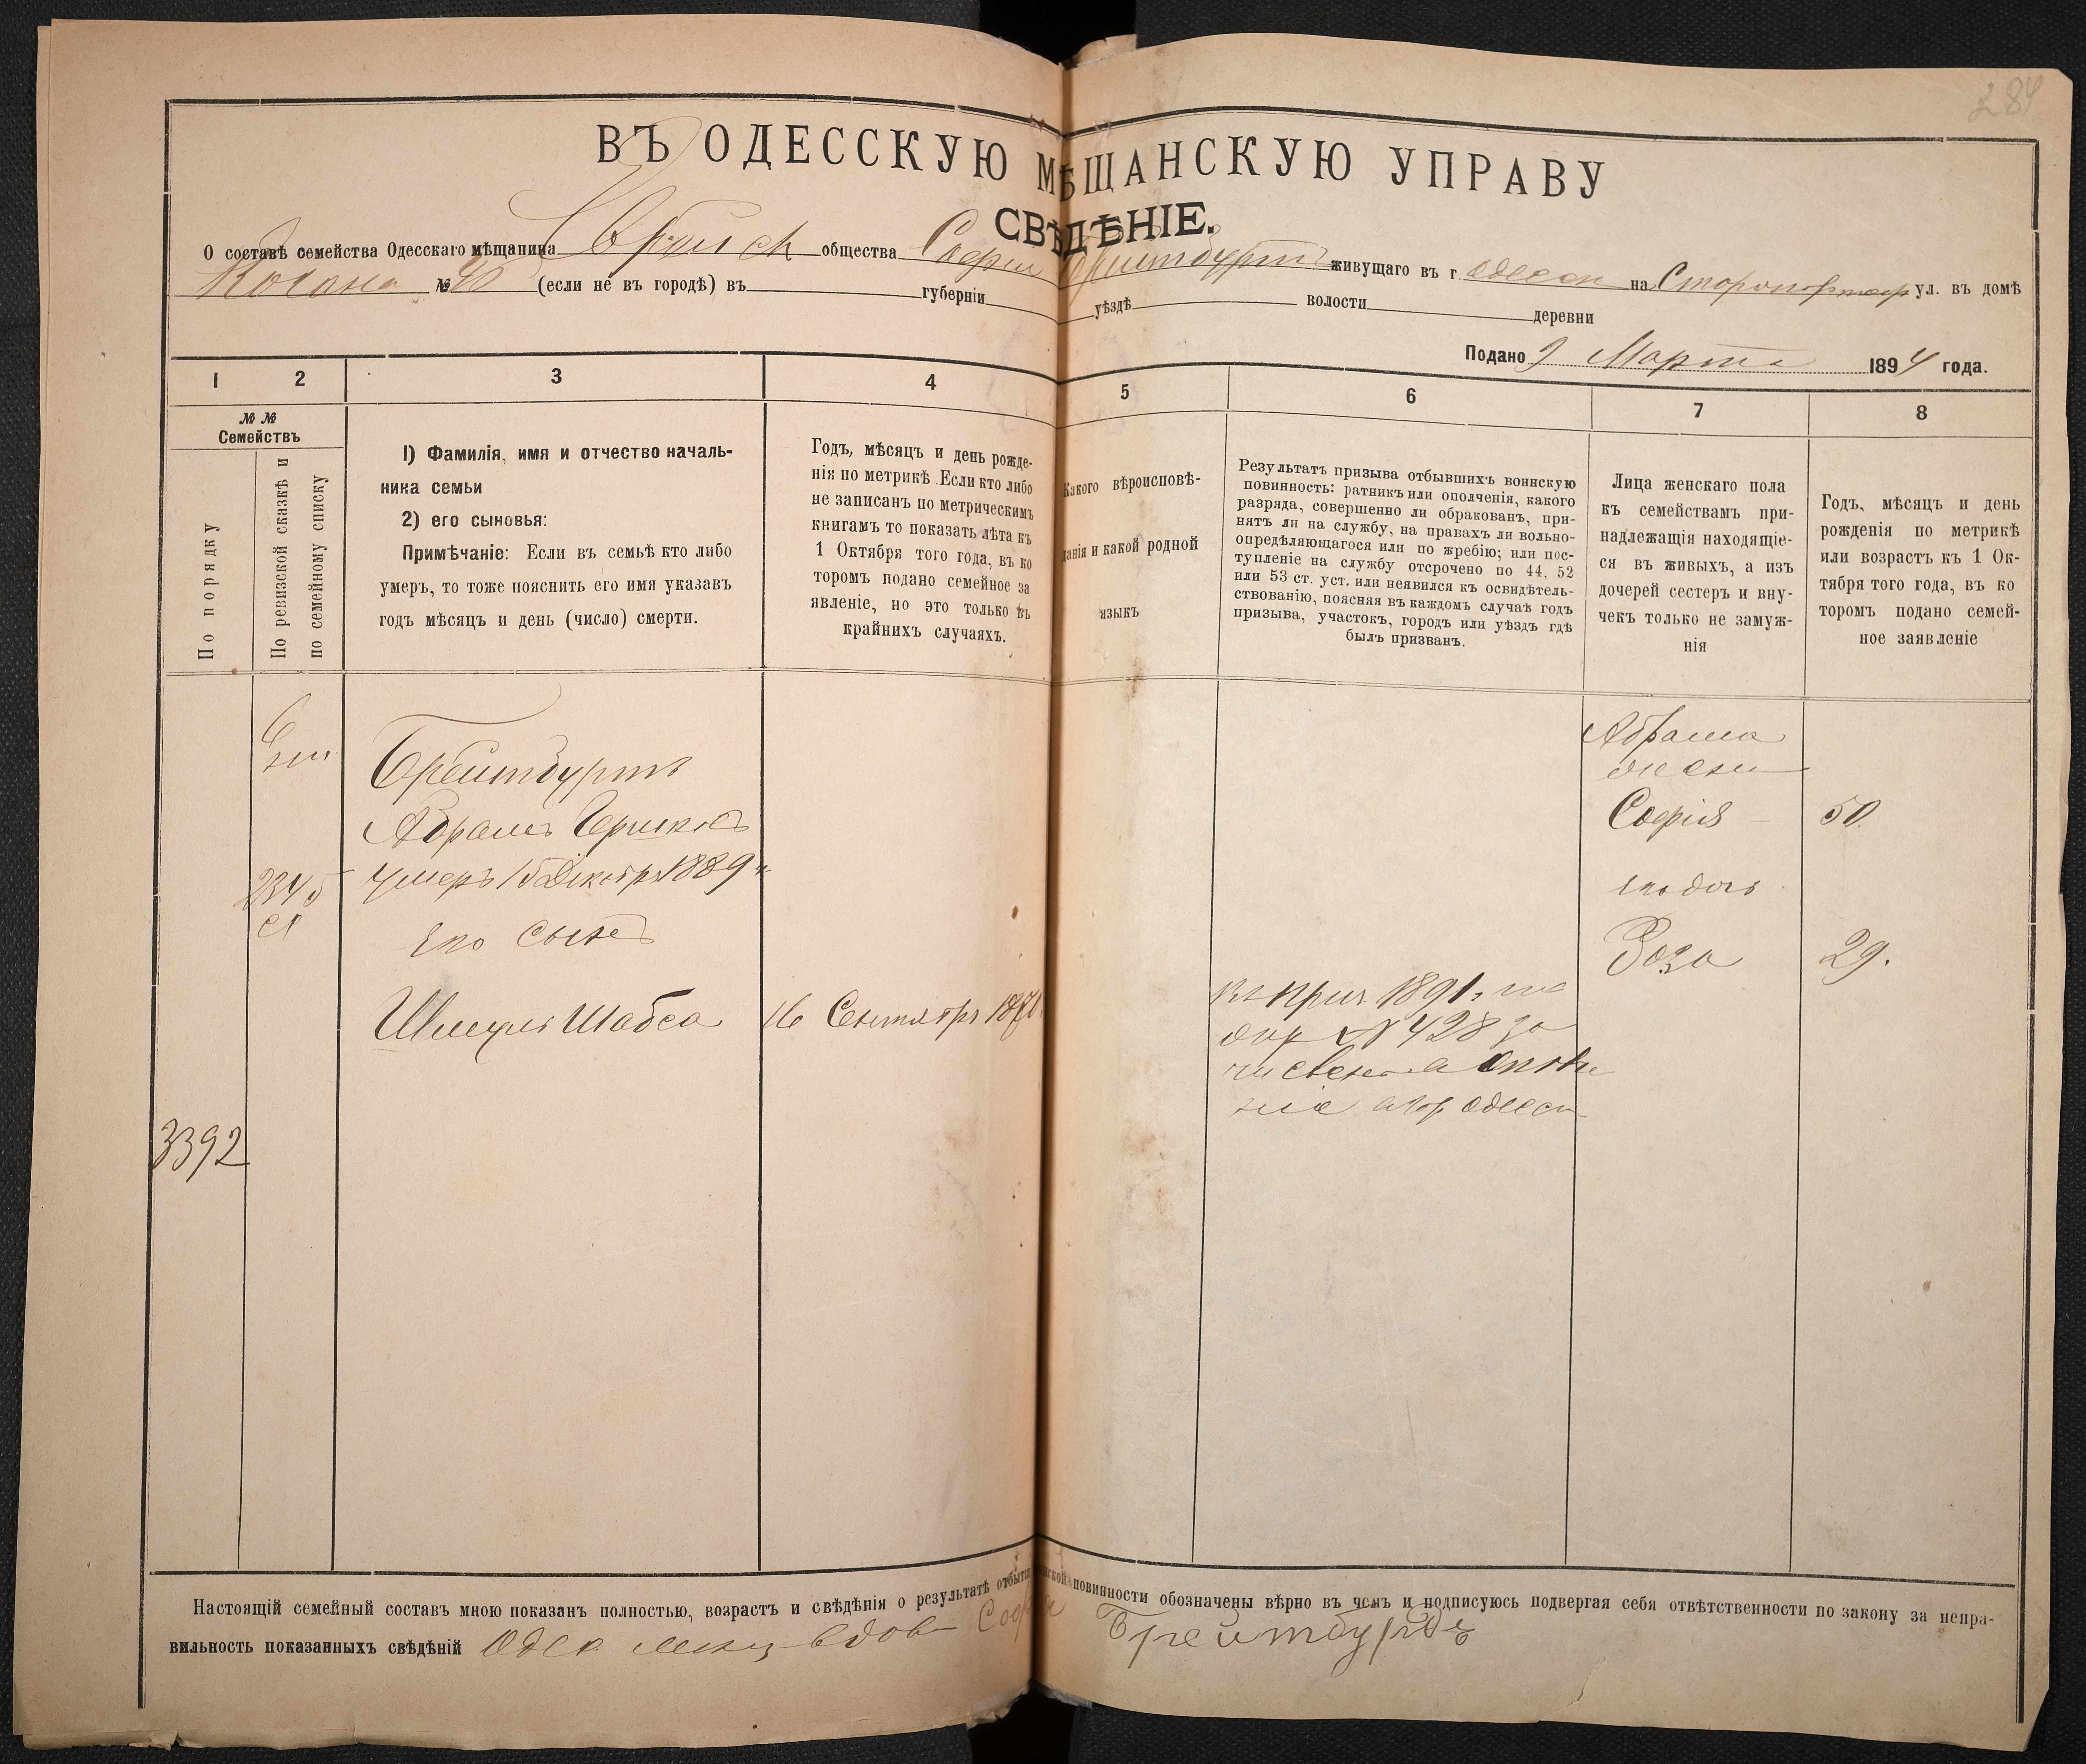 284
ВЪ ОДЕССКУЮ МѢЩАНСКУЮ УПРАВУ
СВѢДѢНІЕ.
О составѣ семейства Одесскаго мѣщанина Еврейск общества Софіи Брейтбуртъ живущаго въ г. Одессѣ на Старопортоф ул. въ домѣ
Когана № (если не въ городѣ) въ губерніи уѣздѣ волости деревни
Подано 9 Марта 1894 года.
1 2 3 4 5 6 7 8
№ №
Семействъ
По порядку
По ревизской сказкѣ и
по семейному списку
1) Фамилія, имя и отчество началь-
ника семьи
2) его сыновья:
Примѣчаніе: Если въ семьѣ кто либо
умеръ, то тоже пояснить его имя указавъ
годъ мѣсяцъ и день (число) смерти.
Годъ, мѣсяцъ и день рожде-
нія по метрикѣ. Если кто либо
не записанъ по метрическимъ
книгамъ то показать лѣта къ
1 Октября того года, въ ко
торомъ подано семейное за
явленіе, но это только въ
крайнихъ случаяхъ.
Какого вѣроисповѣ-
данія и какой родной
языкъ
Результатъ призыва отбывшихъ воинскую
повинность: ратникъ или ополченія, какого
разряда, совершенно ли обракованъ, при-
нятъ ли на службу, на правахъ ли вольно-
опредѣляющагося или по жребію; или пос-
тупленіе на службу отсрочено по 44, 52
или 53 ст. уст. или неявился къ освидѣтель-
ствованію, поясняя въ каждомъ случаѣ годъ
призыва, участокъ, городъ или уѣздъ гдѣ
былъ призванъ.
Лица женскаго пола
къ семействамъ при-
надлежащія находящіе-
ся въ живыхъ, а изъ
дочерей сестеръ и вну-
чекъ только не замуж-
нія
Годъ, мѣсяцъ и день
рожденія по метрикѣ
или возрастъ къ 1 Ок-
тября того года, въ ко
торомъ подано семей-
ное заявленіе
Брейтбуртъ
Абрамъ
умеръ 15 Декабр 1889 г
2345
его сынъ
Шмуль Шабса
16 Сентябр 1870
3392
въ приз 1891
№ 428 за
Одесс
Абрама
жена
Софія
50
его дочь
Роза
29.
Настоящій семейный составъ мною показанъ полностью, возрастъ и свѣдѣнія о результатѣ отбытія воинской повинности обозначены вѣрно въ чемъ и подписуюсь подвергая себя отвѣтственности по закону за непра-
вильность показанныхъ свѣдѣній Одес мещ вдов Софія Брейтбурдъ